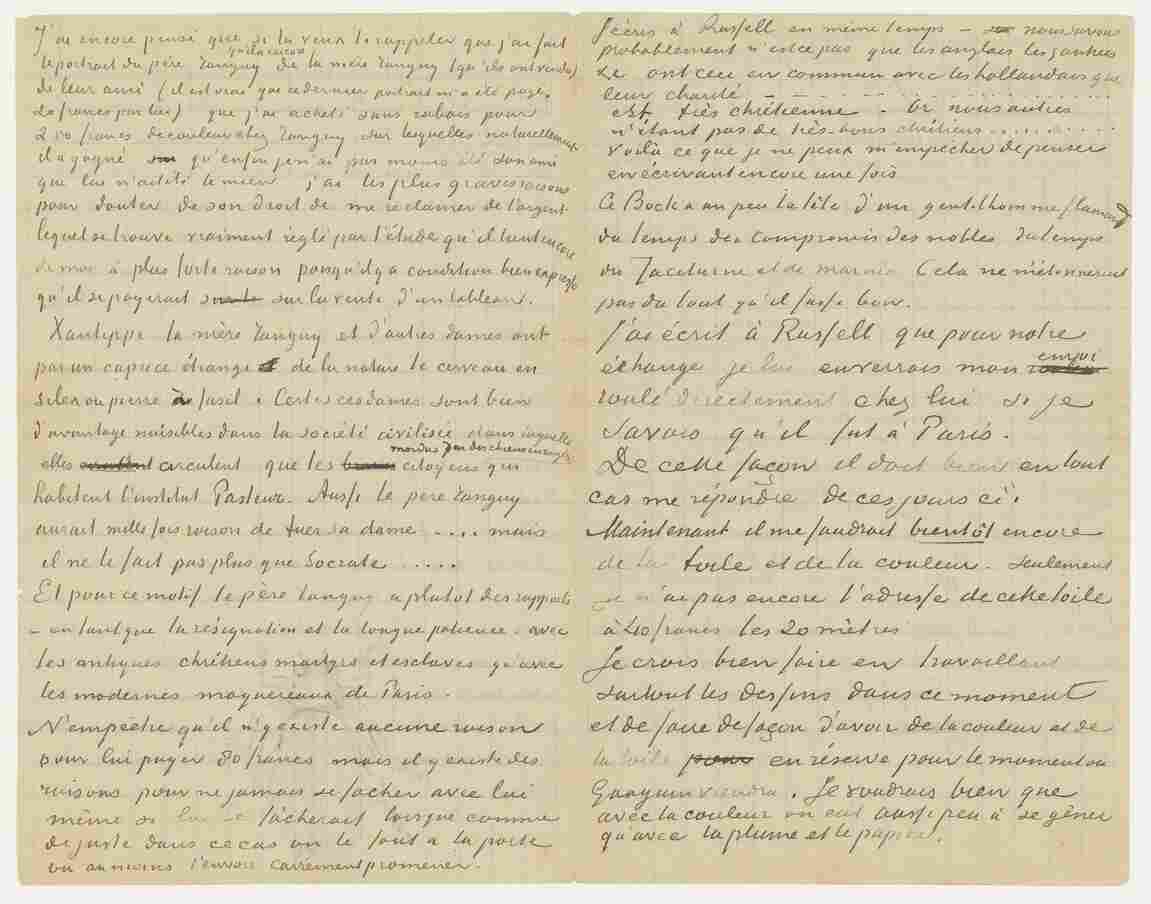 J'ai encore pensé que si tu veux te rappeler que j'ai fait
qu'il a encore
le portrait du père Tanguy de la mère Tanguy (qu'ils ont vendu)
de leur ami (il est vrai que ce dernier portrait m'a été payé
20 francs par lui) que j'ai acheté sans rabais pour
250 francs de couleur chez Tanguy sur lesquelles naturellement
il a gagné qu'enfin je n'ai pas moins été son ami
que lui n'a été le mien j'ai les plus graves raisons
pour douter de son droit de me réclamer de l'argent
lequel se trouve vraiment réglé par l'étude qu'il tient encore
de moi à plus forte raison puisqu'il y a condition bien expresse
qu'il se payerait sur la vente d'un tableau.
Xantippe la mère Tanguy et d'autres dames ont
par un caprice étrange de la nature le cerveau en
silex ou pierre à fusil. Certes ces dames sont bien
d'avantage nuisibles dans la société civilisée dans laquelle
mordus par des chiens enragés
elles circulent que les citoyens qui
habitent l'institut Pasteur. Aussi le père Tanguy
aurait mille fois raison de tuer sa dame .... mais
il ne le fait pas plus que Socrate .....
Et pour ce motif le père Tanguy a plutot des rapports
– en tant que la résignation et la longue patience – avec
les antiques chrétiens martyrs et esclaves qu'avec
les modernes maquereaux de Paris.
N'empêche qu'il n'y existe aucune raison
pour lui payer 80 francs mais il y existe des
raisons pour ne jamais se facher avec lui
même si lui se fâcherait lorsque comme
de juste dans ce cas on le fout à la porte
ou au moins l'envoie carrément promener.
J'écris à Russell en même temps – nous savons
probablement n'est ce pas que les anglais les yankees
&c ont ceci en commun avec les hollandais que
leur charité – – ..........
est très chrétienne. Or nous autres
n'étant pas de très bons chrétiens.........
Voilà ce que je ne peux m'empêcher de penser
en écrivant encore une fois
Ce Bock a un peu la tête d'un gentilhomme flamand
du temps du compromis des nobles du temps
du Taciturne et de Marnix. Cela ne m'étonnerait
pas du tout qu'il fasse bon.
J'ai écrit à Russell que pour notre
envoi
échange je lui enverrais mon
roulé directement chez lui si je
savais qu'il fut à Paris.
De cette façon il doit bien en tout
cas me répondre de ces jours ci.
Maintenant il me faudrait bientôt encore
de la toile et de la couleur. Seulement
je n'ai pas encore l'adresse de cette toile
à 40 francs les 20 mètres
Je crois bien faire en travaillant
surtout les dessins dans ce moment
et de faire de façon d'avoir de la couleur et de
la toile en réserve pour le moment ou
Gauguin viendra. Je voudrais bien que
avec la couleur on eut aussi peu à se gêner
qu'avec la plume et le papier.